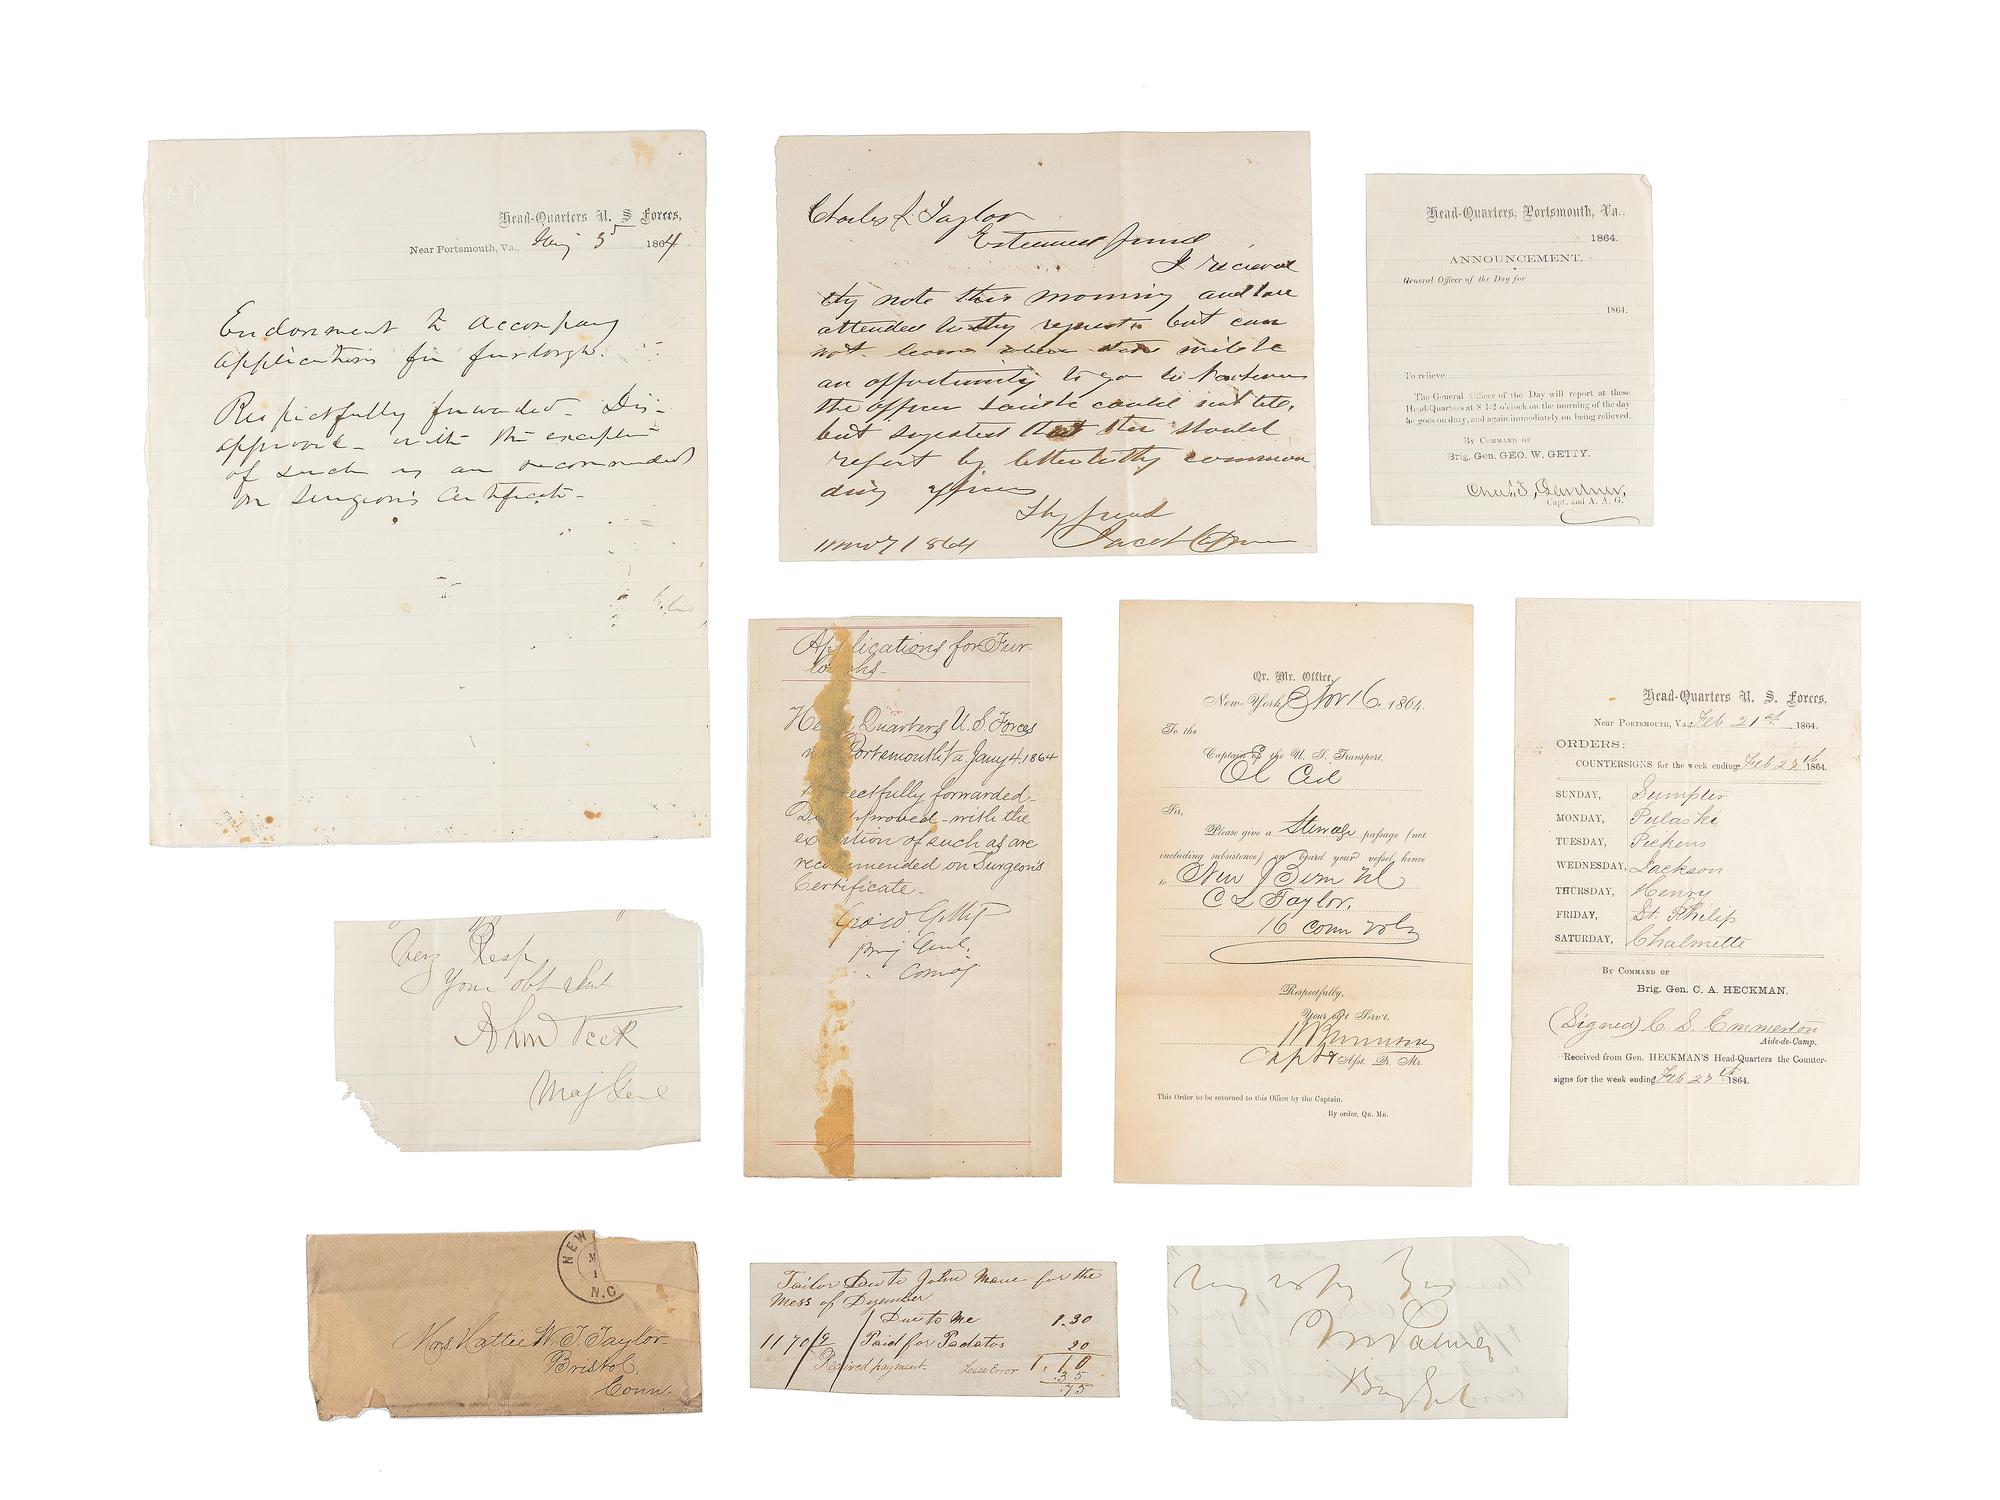 Head-Quarters U. S. Forces,
Near Portsmouth, Va., 5 1864
Endorsement to accompany
applications for furlough.
Respectfully forwarded - Dis-
approved - with the exception
of such as are recommended
on Surgeon's Certificate -
Charles L. Taylor
Esteemed friend
I recieved
thy note this morning and have
attended to thy request, but can
not learn when there will be
an opportunity to go to
the officer could not tell,
but sugested that thee should
report by letter to thy comman
ding officer
Thy friend
Jacob
1864
Head-Quarters, Portsmouth, Va.,
1864.
ANNOUNCEMENT.
General Officer of the Day for
1864.
To relieve
The General Officer of the Day will report at these
Head-Quarters at 8 1-2 o'clock on the morning of the day
he goes on duty, and again immediately on being relieved.
By Command of
Brig. Gen. GEO. W. GETTY.
Capt. and A. A. G.
Applications for Fur-
loughs-
Head Quarters U.S. Forces
Portsmouth Va. Jany 4. 1864
Respectfully forwarded-
Disapproved - with the
exception of such as are
recommended on Surgeon's
Certificate -
Geo W. Getty
Brig Genl.
" Comdg
Qr. Mr. Office,
New-York, Nov 16, 1864.
To the
Captain of the U. S. Transport,
El Cid
Sir,
Please give a Steerage passage (not
including subsistence) on board your vessel, hence
to New Bern NC
C L Taylor.
16 Conn Vols
Respectfully,
Your Ob't Serv't,
Capt & Asst. Qr. Mr.
This Order to be returned to this Office by the Captain.
By order, Qr. Mr.
Head-Quarters U. S. Forces,
Near Portsmouth, Va., Feb 21st 1864.
ORDERS:
COUNTERSIGNS for the week ending Feb 27th 1864.
SUNDAY, Sumpter
MONDAY, Pulaski
TUESDAY, Pickens
WEDNESDAY, Jackson
THURSDAY, Henry
FRIDAY, St. Philip
SATURDAY, Chalmette
By Command of
Brig. Gen. C. A. HECKMAN.
(Signed) C. S. Emmerton
Aide-de-Camp.
Received from Gen. HECKMAN'S Head-Quarters the Counter-
signs for the week ending Feb 27th 1864.
Very Resp
Your obt Servt
John Peck
Maj Genl
NEW
M
1
N.C
Mrs. Hattie W. T. Taylor.
Bristol,
Conn.
Tailor Due to John Mane for the
Mess of Dyember
Due to Me 1.30
Paid for Padatos 20
Recived payment. Less Error 1.10
.35
.75
Palmer